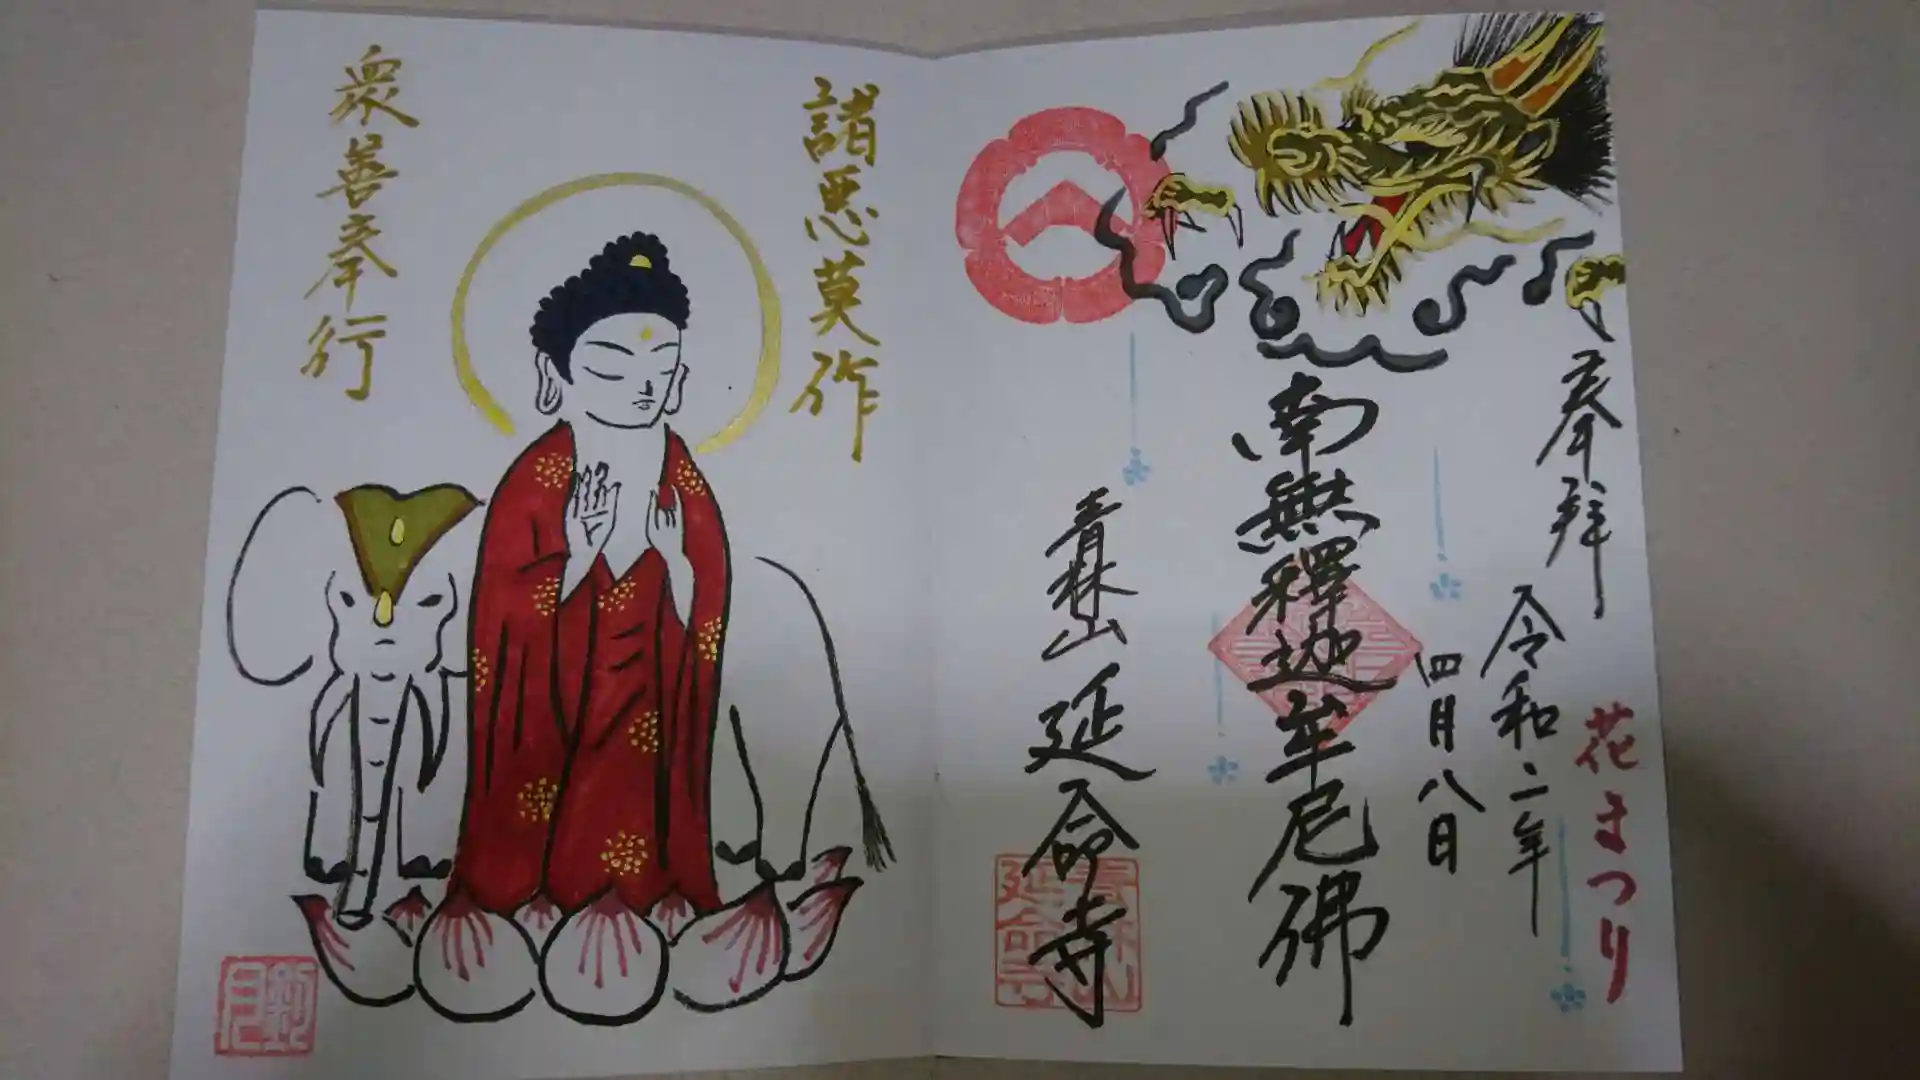 花まつり
奉拝
令和二年
四月八日
南無釋迦牟尼佛
青林山延命寺
諸悪莫作
衆善奉行